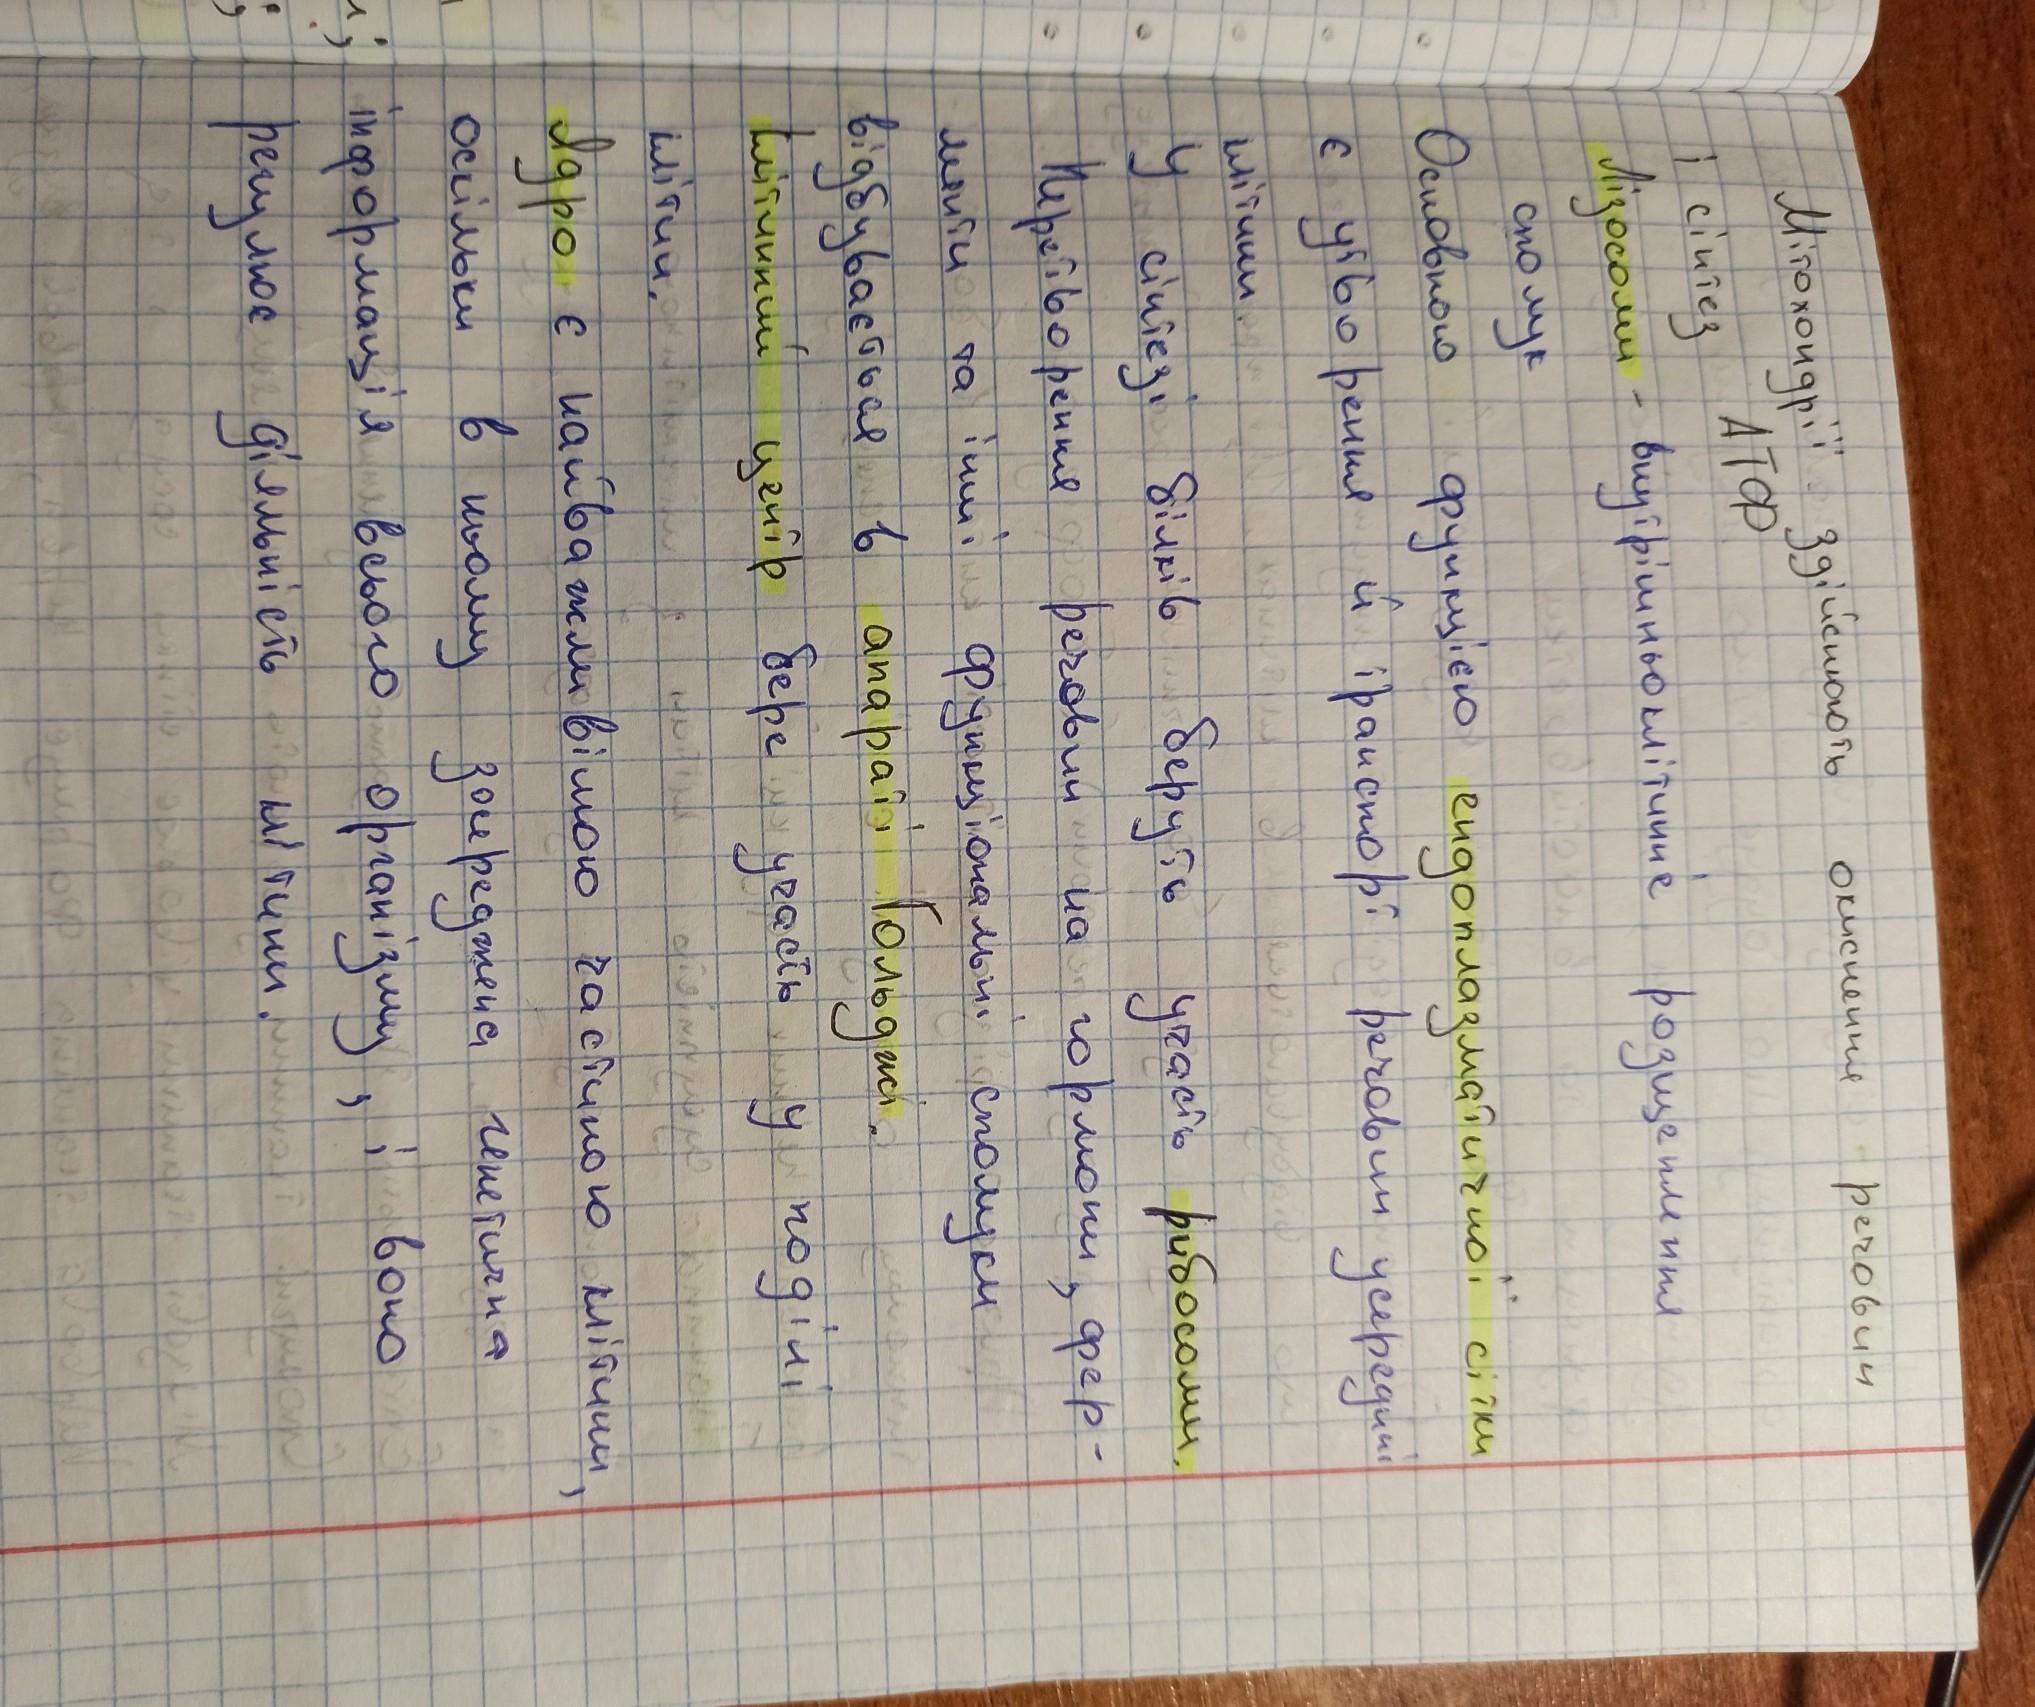 Мітохондрії здійснюють окиснення речовин
і синтез АТФ
Лізосоми - внутрішньоклітинне розщеплення
сполук
Основною функцією ендоплазматичної сітки
є утворення й транспорт речовин усередині
клітини.
У синтезі білків беруть участь рибосоми.
Перетворення речовин на гормони, фер-
менти та інші функціональні сполуки
відбувається в апараті Гольджі.
Клітинний центр бере участь у поділі
клітин.
Ядро є найважливішою частиною клітини,
оскільки в ньому зосереджена генетична
інформація всього організму, і воно
регулює діяльність клітини.